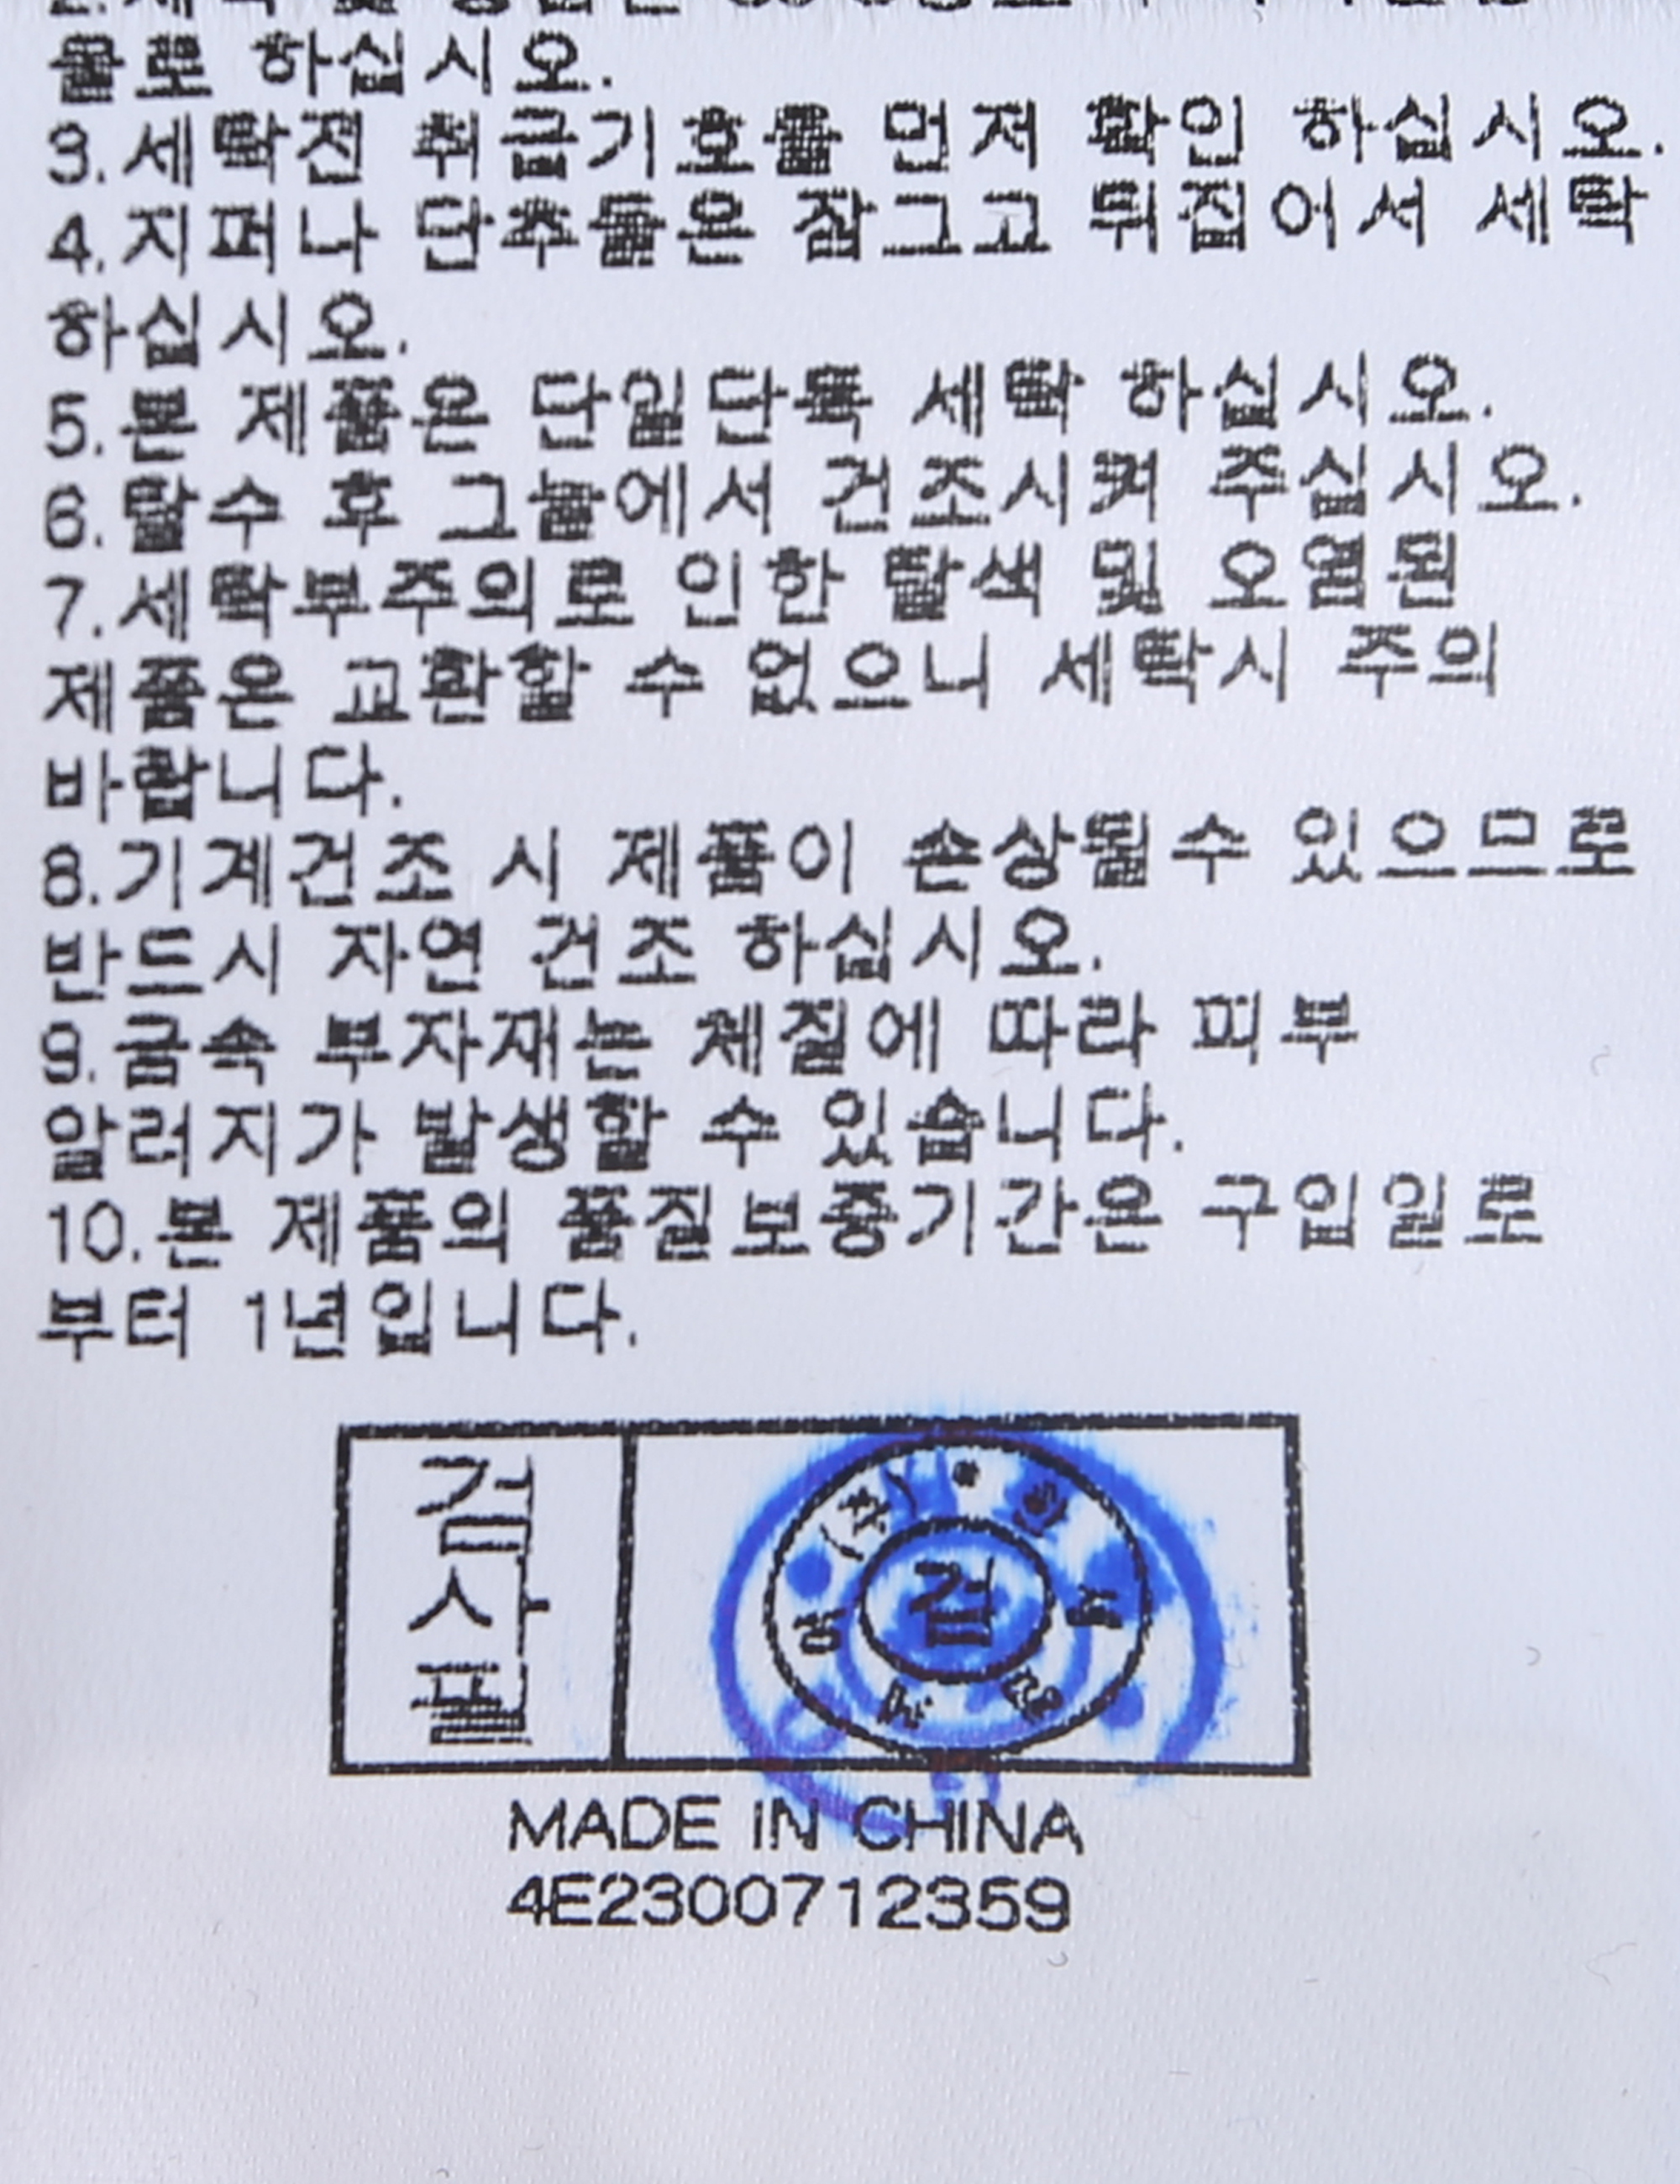 물로 하십시오.
3.세탁전 취급기호를 먼저 확인 하십시오.
4.지퍼나 단추들은 잠그고 뒤집어서 세탁
하십시오.
5.본 제품은 단일단독 세탁 하십시오.
6.탈수 후 그늘에서 건조시켜 주십시오.
7.세탁부주의로 인한 탈색 및 오염된
제품은 교환할 수 없으니 세탁시 주의
바랍니다.
8.기계건조 시 제품이 손상될수 있으므로
반드시 자연 건조 하십시오.
9.금속 부자재는 체질에 따라 피부
알러지가 발생할 수 있습니다.
10.본 제품의 품질보증기간은 구입일로
부터 1년입니다.
검사필
검
MADE IN CHINA
4E2300712359